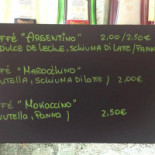 FFÈ "ARGENTINO" 2,00/2.50€
DULCE DE LECHE, SCHIUMA DI LATTE/PANNA
FFÈ "MAROCCHINO"
UTELLA, SCHIUMA DI LATTE) 2,00€
FFÈ "MONACCINO"
UTELLA, PANNA) 2.50€